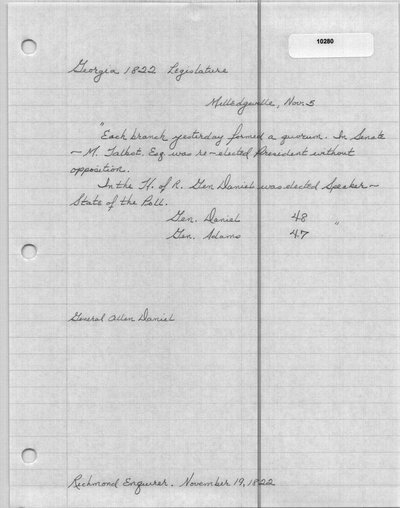 10280
Georgia 1822 Legislature
Milledgeville, Nov. 5
"Each branch yesterday formed a quorum. In Senate
- M. Talbot, Esq. was re-elected President without
opposition.
In the H. of R. Gen Daniel was elected Speaker -
State of the Poll.
Gen. Daniel 48 "
Gen. Adams 47
General Allen Daniel
Richmond Enquirer. November 19, 1822